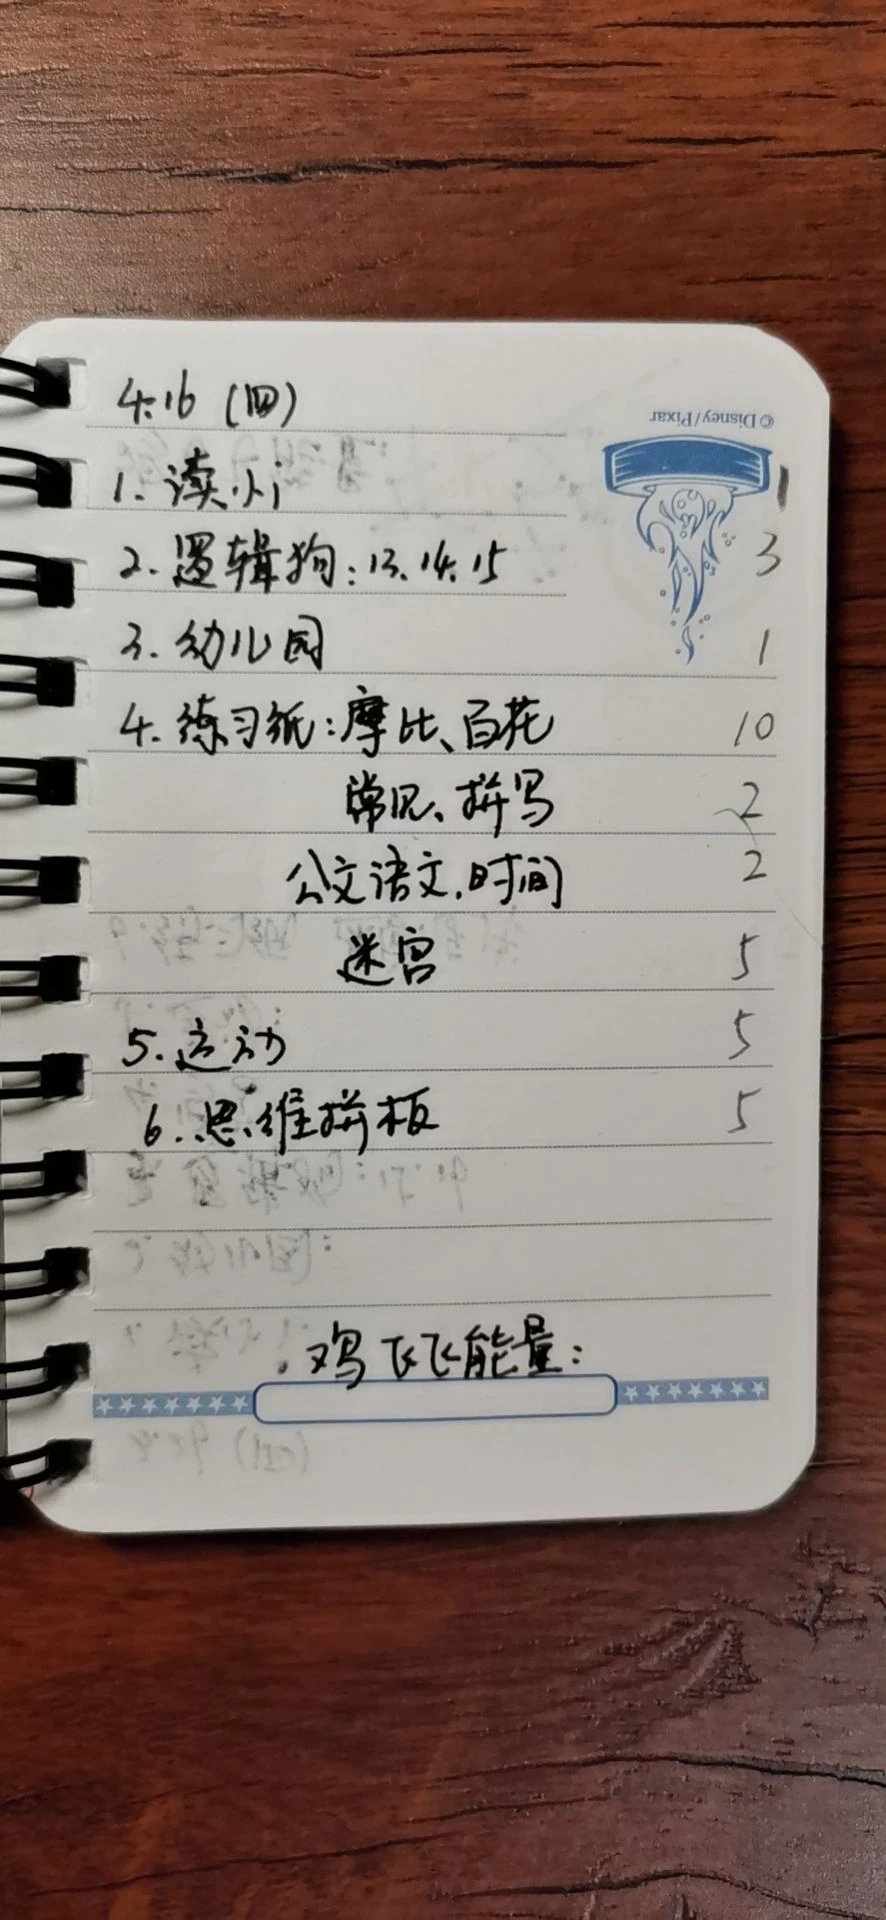 4.16 (四)
©Disney/Pixar
1. 读小j 1
2. 逻辑狗:13.14.15 3
3. 幼儿园 1
4. 练习纸:摩比、百花 10
常见、拼写 2
公文语文,时间 2
迷宫 5
5. 运动 5
6. 思维拼板 5
鸡飞飞能量: